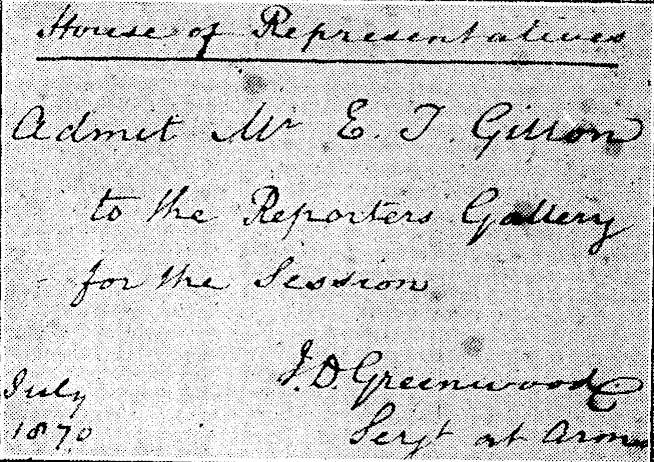 House of Representatives
Admit Mr E. T. Gillon
to the Reporters Gallery
for the Session
J. D. Greenwood
July
1870
Serjt at Arms